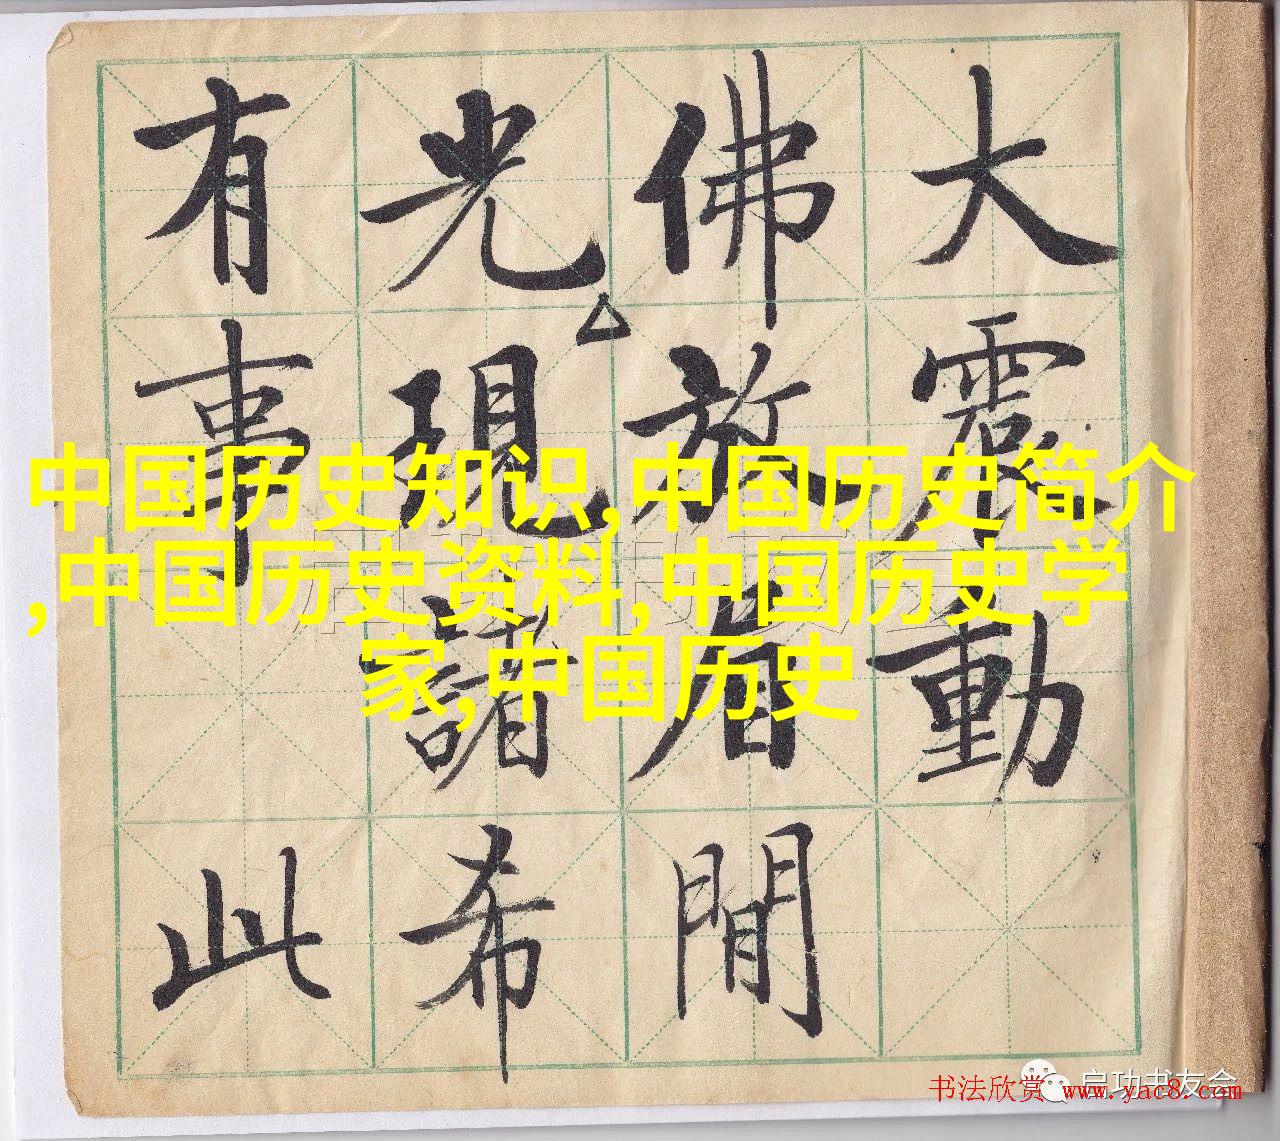 大震動
佛放眉間
光現諸希
有事此
中国历史知识,中国历史简介
,中国历史资料,中国历史学
家,中国历史
启功书友会
书法欣赏 www.yac8.com